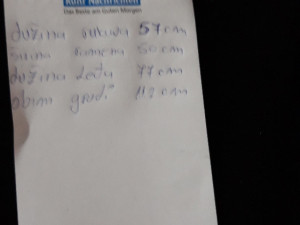 Ruhr Nachrichten
Das Beste am Guten Morgen.
dužina rukava 57 cm
širina ramena 50 cm
dužina leđa 77 cm
obim grudi 112 cm